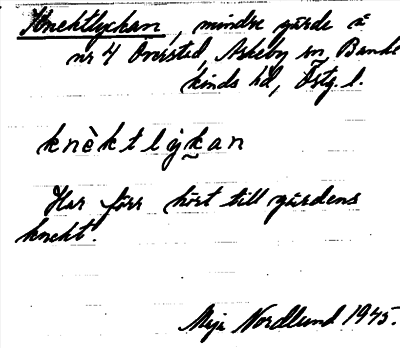 Knektlyckan, mindre gärde å
nr 4 Överstad, Askeby sn, Banke
kinds hd, Östg. l.
knèktlýkan
Har förr hört till gårdens
knekt.
Maja Nordlund 1945.